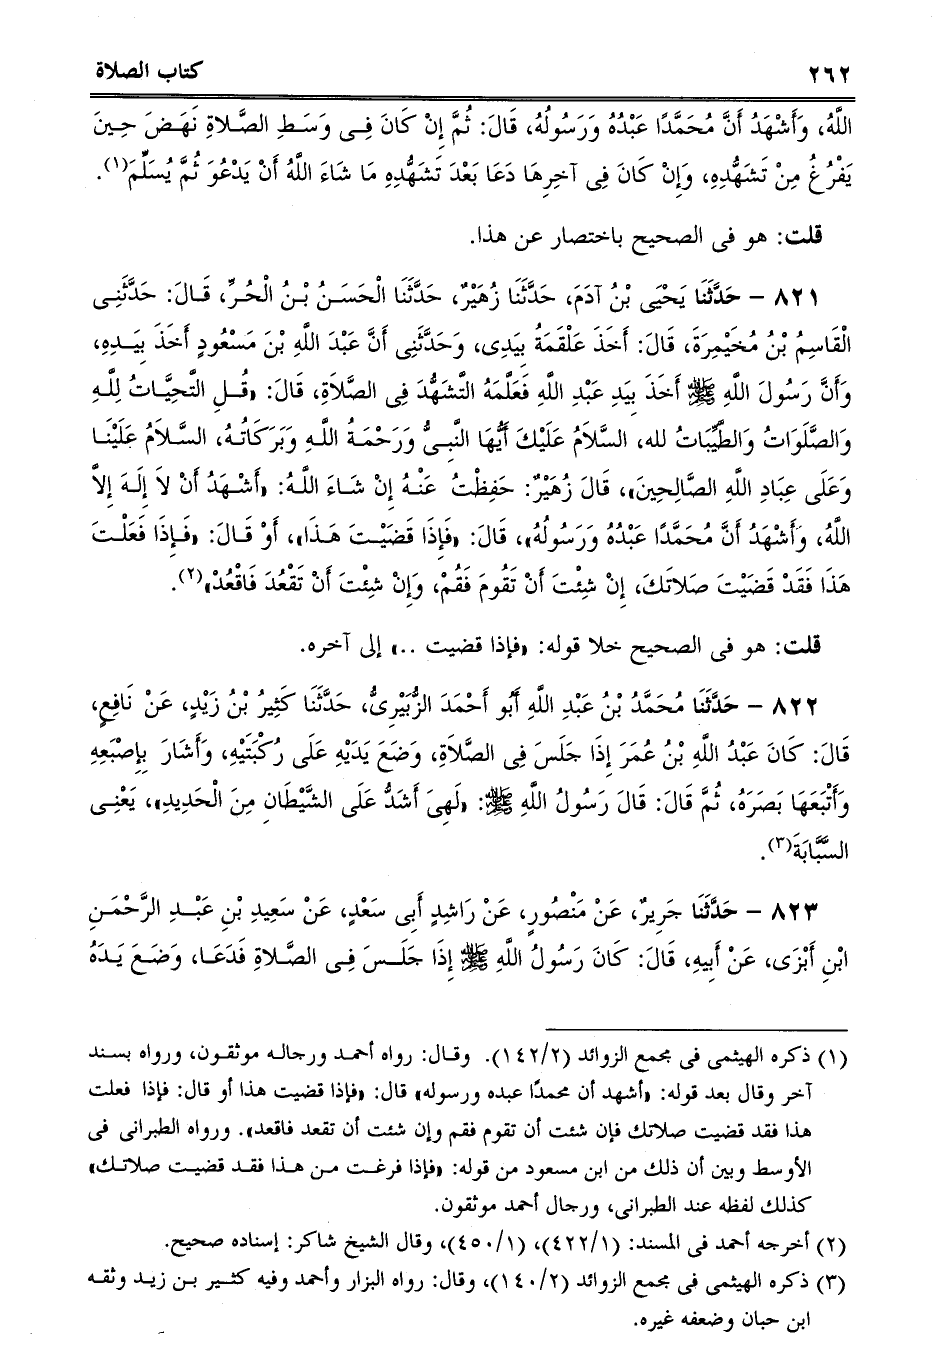 ٢٦٢ كتاب الصلاة
اللَّهُ، وَأَشْهَدُ أَنَّ مُحَمَّدًا عَبْدُهُ وَرَسُولُهُ، قَالَ: ثُمَّ إِنْ كَانَ فِى وَسَطِ الصَّلاةِ نَهَضَ حِينَ
يَفْرُغُ مِنْ تَشَهُّدِهِ، وَإِنْ كَانَ فِى آخِرِهَا دَعَا بَعْدَ تَشَهُّدِهِ مَا شَاءَ اللَّهُ أَنْ يَدْعُوَ ثُمَّ يُسَلِّمَ(١).
قلت: هو فى الصحيح باختصار عن هذا.
٨٢١ – حَدَّثَنَا يَحْيَى بْنُ آدَمَ، حَدَّثَنَا زُهَيْرٌ، حَدَّثَنَا الْحَسَنُ بْنُ الْحُرِّ، قَالَ: حَدَّثَنِى
الْقَاسِمُ بْنُ مُخَيْمِرَةَ، قَالَ: أَخَذَ عَلْقَمَةُ بِيَدِى، وَحَدَّثَنِى أَنَّ عَبْدَ اللَّهِ بْنَ مَسْعُودٍ أَخَذَ بِيَدِهِ،
وَأَنَّ رَسُولَ اللَّهِ ﷺ أَخَذَ بِيَدِ عَبْدِ اللَّهِ فَعَلَّمَهُ التَّشَهُّدَ فِى الصَّلاَةِ، قَالَ: «قُلِ التَّحِيَّاتُ لِلَّهِ
وَالصَّلَوَاتُ وَالطَّيِّبَاتُ لله، السَّلاَمُ عَلَيْكَ أَيُّهَا النَّبِىُّ وَرَحْمَةُ اللَّهِ وَبَرَكَاتُهُ، السَّلاَمُ عَلَيْنَا
وَعَلَى عِبَادِ اللَّهِ الصَّالِحِينَ»، قَالَ زُهَيْرٌ: حَفِظْتُ عَنْهُ إِنْ شَاءَ اللَّهُ: «أَشْهَدُ أَنْ لاَ إِلَهَ إِلاَّ
اللَّهُ، وَأَشْهَدُ أَنَّ مُحَمَّدًا عَبْدُهُ وَرَسُولُهُ»، قَالَ: «فَإِذَا قَضَيْتَ هَذَا»، أَوْ قَالَ: «فَإِذَا فَعَلْتَ
هَذَا فَقَدْ قَضَيْتَ صَلاَتَكَ، إِنْ شِئْتَ أَنْ تَقُومَ فَقُمْ، وَإِنْ شِئْتَ أَنْ تَقْعُدَ فَاقْعُدْ»(٢).
قلت: هو فى الصحيح خلا قوله: «فإذا قضيت ..» إلى آخره.
٨٢٢ – حَدَّثَنَا مُحَمَّدُ بْنُ عَبْدِ اللَّهِ أَبُو أَحْمَدَ الزُّبَيْرِىُّ، حَدَّثَنَا كَثِيرُ بْنُ زَيْدٍ، عَنْ نَافِعٍ،
قَالَ: كَانَ عَبْدُ اللَّهِ بْنُ عُمَرَ إِذَا جَلَسَ فِى الصَّلاَةِ، وَضَعَ يَدَيْهِ عَلَى رُكْبَتَيْهِ، وَأَشَارَ بِإِصْبَعِهِ
وَأَتْبَعَهَا بَصَرَهُ، ثُمَّ قَالَ: قَالَ رَسُولُ اللَّهِ ﷺ: «لَهِىَ أَشَدُّ عَلَى الشَّيْطَانِ مِنَ الْحَدِيدِ»، يَعْنِى
السَّبَّابَةَ(٣).
٨٢٣ – حَدَّثَنَا جَرِيرٌ، عَنْ مَنْصُورٍ، عَنْ رَاشِدٍ أَبِى سَعْدٍ، عَنْ سَعِيدِ بْنِ عَبْدِ الرَّحْمَنِ
ابْنِ أَبْزَى، عَنْ أَبِيهِ، قَالَ: كَانَ رَسُولُ اللَّهِ ﷺ إِذَا جَلَسَ فِى الصَّلاةِ فَدَعَا، وَضَعَ يَدَهُ
(١) ذكره الهيثمى فى مجمع الزوائد (١٤٢/٢). وقال: رواه أحمد ورجاله موثقون، ورواه بسند
آخر وقال بعد قوله: «أشهد أن محمدًا عبده ورسوله» قال: «فإذا قضيت هذا أو قال: فإذا فعلت
هذا فقد قضيت صلاتك فإن شئت أن تقوم فقم وإن شئت أن تقعد فاقعد». ورواه الطبرانى فى
الأوسط وبين أن ذلك من ابن مسعود من قوله: «فإذا فرغت من هذا فقد قضيت صلاتك»
كذلك لفظه عند الطبرانى، ورجال أحمد موثقون.
(٢) أخرجه أحمد فى المسند: (٤٢٢/١)، (٤٥٠/١)، وقال الشيخ شاكر: إسناده صحيح.
(٣) ذكره الهيثمى فى مجمع الزوائد (١٤٠/٢)، وقال: رواه البزار وأحمد وفيه كثير بن زيد وثقه
ابن حبان وضعفه غيره.